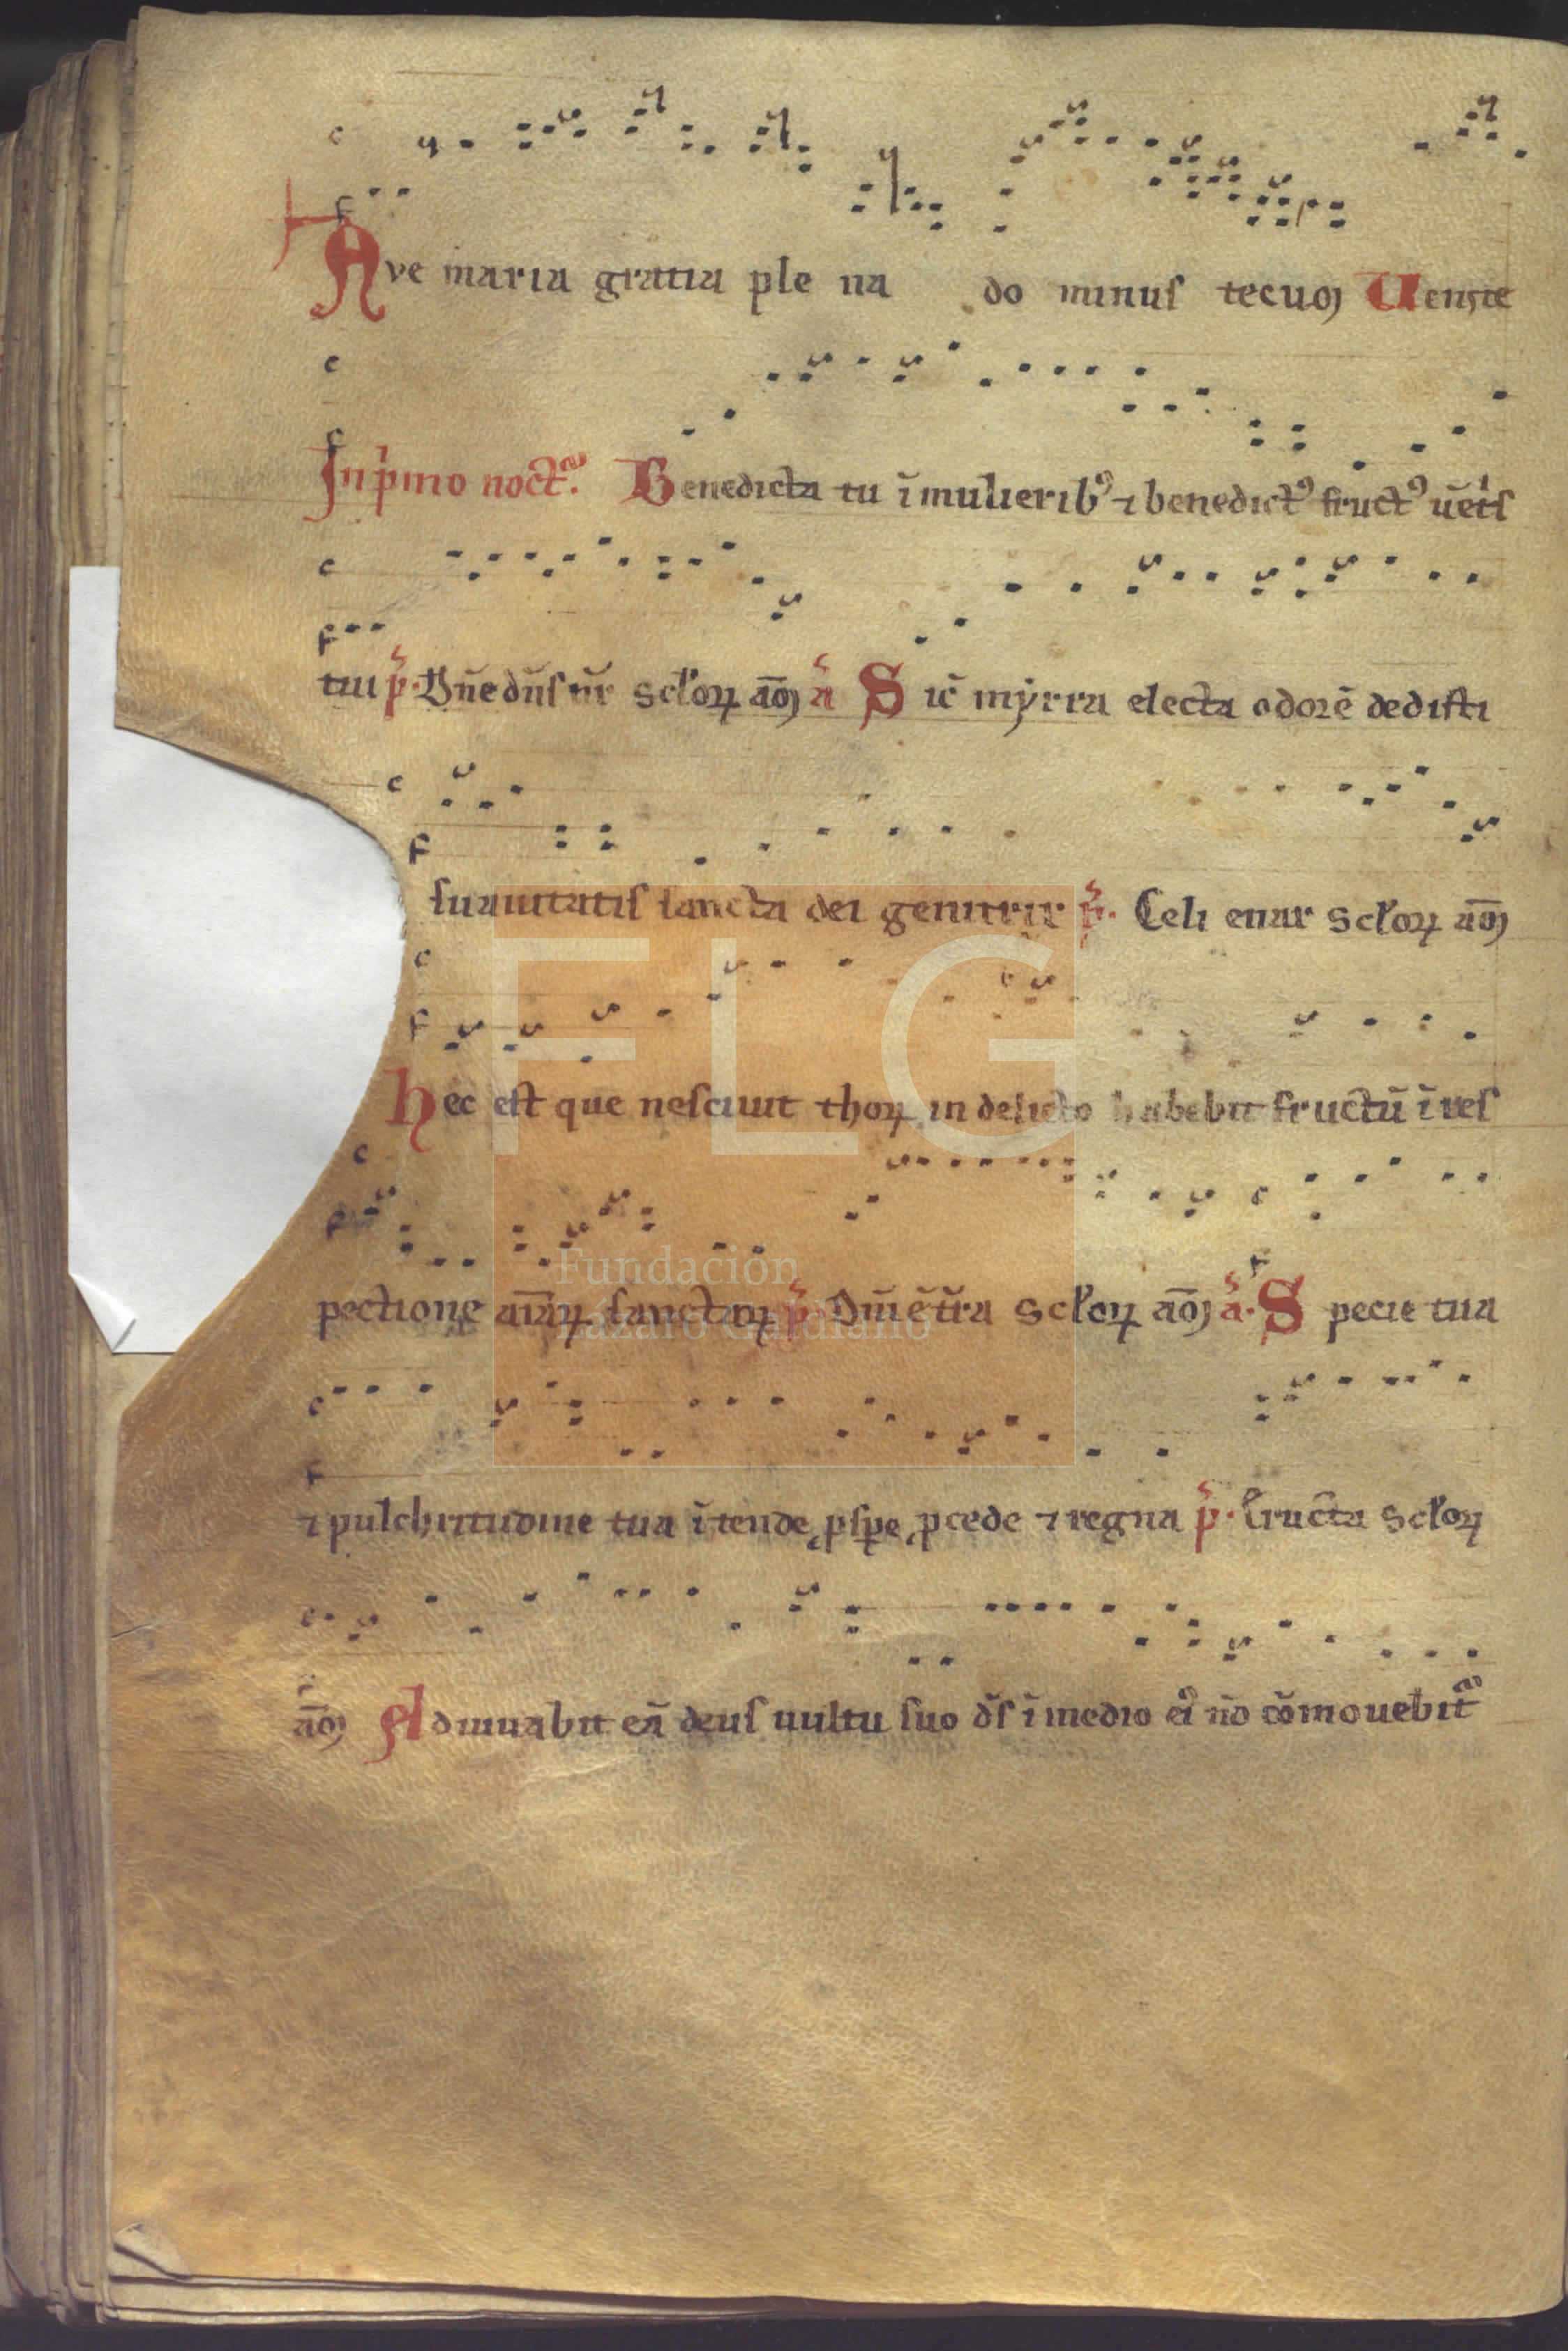 Ave maria gratia ple na do minus tecuꝫ Uenite
In p'mo noct᷑. Benedicta tu ĩ mulierib⁹ ⁊ benedict⁹ fruct⁹ uẽt's
tui p̃. Dñe dñs nr̃ scłoꝝ am̄ ã Sic̃ myrra electa odorẽ dedisti
suauitatis sancta dei genitrix p̃. Celi enar sclͦoꝝ am̄
Hec est que nesciuit thoꝝ in delicto habebit fructũ ĩ res
pectione aĩaꝝ sanctaꝝ p̃. Dñi ẽ tr̃a scloꝝ am̄ ã. Specie tua
⁊ pulchritudine tua ĩtende ꝓspe ꝓcede ⁊ regna p̃. Eructa scloꝝ
am̄ Adiuuabit eã deus uultu suo ds̃ ĩ medio ei⁹ nõ cõmouebit᷑
FLG
Fundación
Lázaro Galdiano